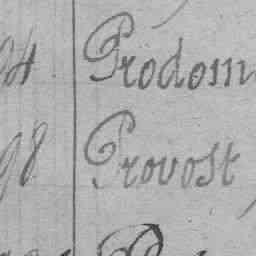 94 Prodom
98 Provost